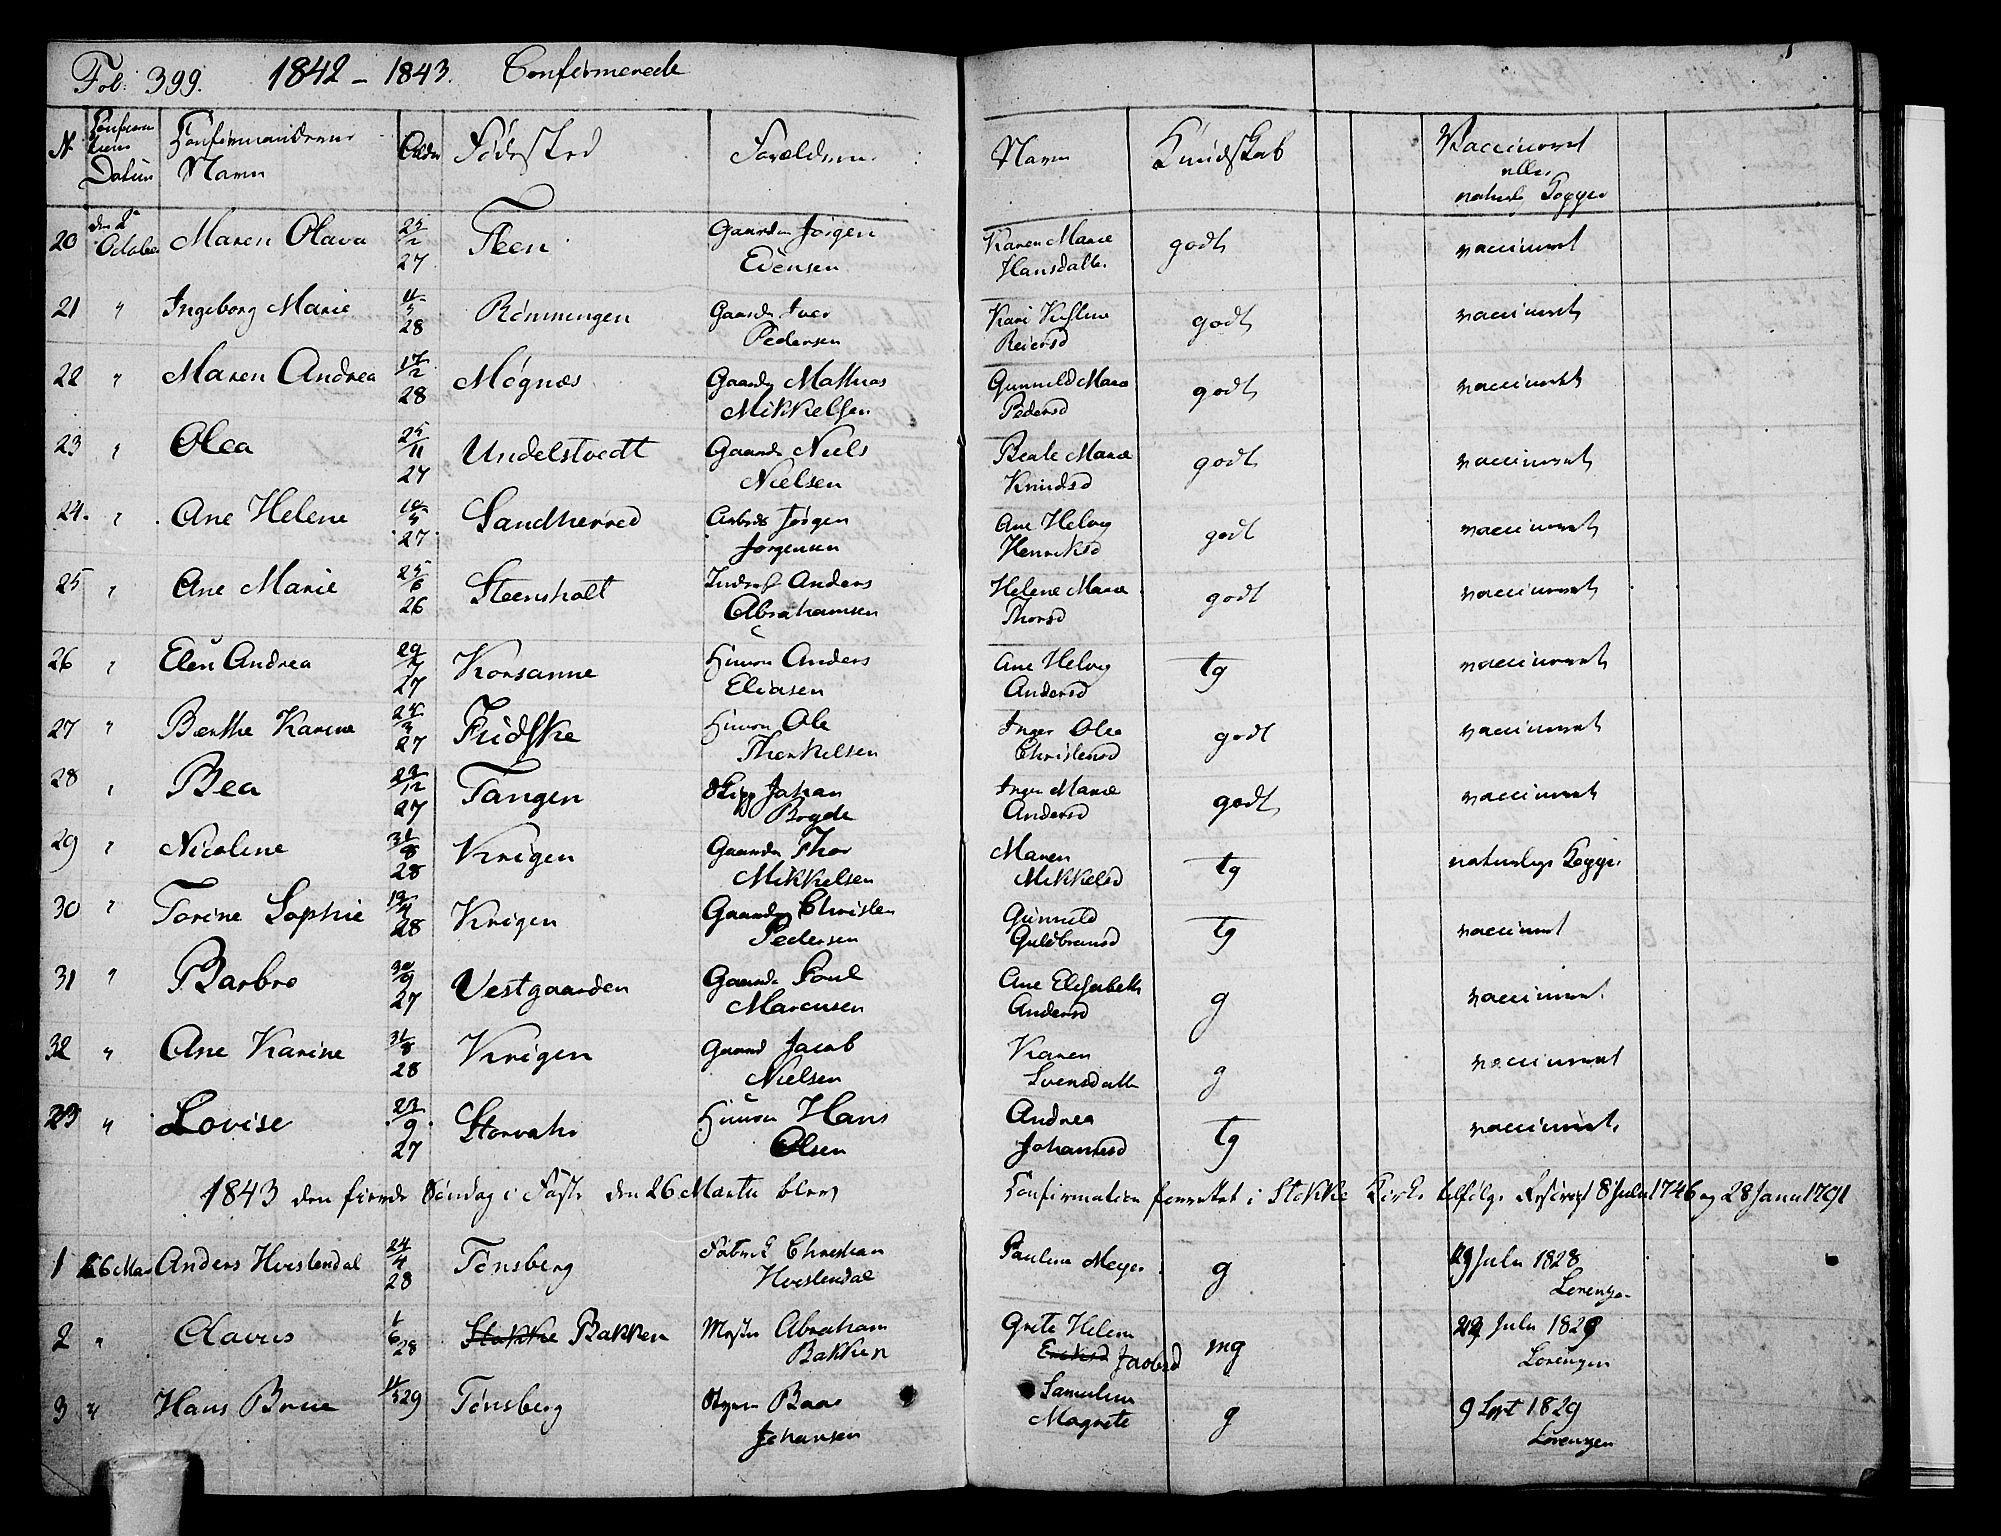 Fol: 399. 1842 – 1843. Confirmerede
N Datum Confirmandernes Navn Alder Fødested Forældrenes Navn Kundskab Vaccineret eller naturl. Kopper
20 den 2 October Maren Olava 27 Teen Gaardm Jørgen Evensen Karen Marie Hansdatter godt vaccineret
21 " Ingeborg Marie 28 Rønningen Gaardm Iver Pedersen Kari Kirstine Reiersd godt vaccineret
22 " Maren Andrea 17/2 28 Møgnæs Gaardm Mathias Mikkelsen Gunnild Marie Pedersd godt vaccineret
23 " Olea 25/11 27 Undelstvedt Gaardm Niels Nielsen Beate Marie Knudsd godt vaccineret
24. " Ane Helene 27 Sandherred Arbeids Jørgen Jørgensen Ane Helvig Henriksd godt vaccineret
25 " Ane Marie 25/6 26 Steensholt Anders Abrahamsen Helene Marie Thorsd godt vaccineret
26 " Elen Andrea 29/7 27 Korsanne Huusm Anders Eliasen Ane Helvig Andersd tg vaccineret
27 " Berthe Karine 27 Fridske Huusm Ole Therkelsen Inger Olea Christensd godt vaccineret
28 " Bea 23/12 27 Tangen Skipp Johan Bryde Inger Marie Andersd godt vaccineret
29 " Nicoline 31/8 28 Krigen Gaardm Thor Mikkelsen Maren Mikkelsd tg naturlige Kopper
30 " Torine Sophie 19/4 28 Krigen Gaardm Christen Pedersen Gunnild Guldbransd tg vaccineret
31 " Barbro 30/9 27 Vestgaarden Gaardm Poul Marensen Ane Elisabeth Andersd g vaccineret.
32 " Ane Karine 31/8 28 Krigen Gaard Jacob Nielsen Karen Svensdatter g vaccineret
33 " Lovise 23/9 27 Storvahr Huusm Hans Olsen Andrea Johannesd tg vaccineret.
1843 den fierde Søndag i Faste den 26 Marts blev Confirmation forrettet i Stokke Kirke tilfølge Rescript 8 Juli 1746 og 28 Janu 1791
1 26 Mar Anders Hvistendal 24/4 28 Tønsberg Fabrick Christian Hvistendal Pauline Meyer g 29 Julu 1828 Lorenzen
2 " Olavus 1/6 28 Stokke Bakken Abraham Bakken Grete Helene Eriksd Jacobsd mg 29 Julu 1829 Lorenzen
3 " Hans Brue 29 Tønsberg Styrm Baar Johansen Samuline Magrete g 9 Sept 1829 Lorenzen